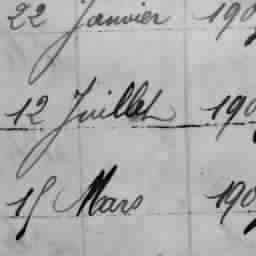 22 Janvier 190
12 Juillet 190
15 Mars 190